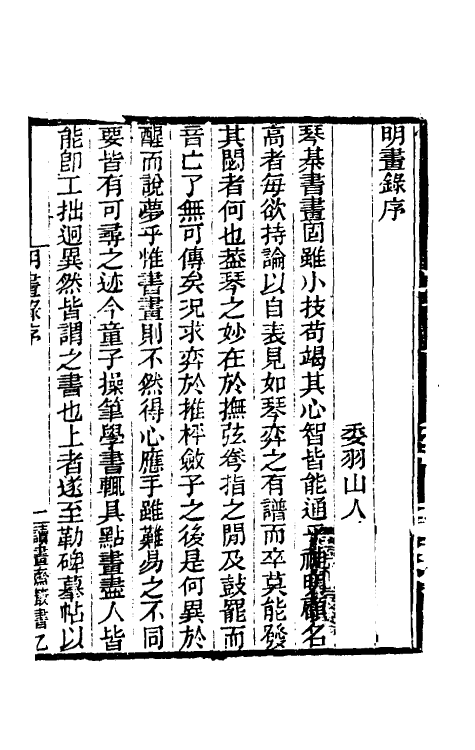 明畫錄序
委羽山人
琴棊書畫固雖小技苟竭其心智皆能通乎神明顧名
高者每欲持論以自表見如琴弈之有譜而卒莫能發
其閟者何也葢琴之妙在於撫弦旁指之閒及鼓罷而
音亡了無可傳矣況求弈於推枰斂子之後是何異於
醒而說夢乎惟書畫則不然得心應手雖難易之不同
要皆有可尋之迹今童子操筆學書輒具點畫盡人皆
能卽工拙迥異然皆謂之書也上者遂至勒碑摹帖以
明畫錄序
一 讀畫齋叢書 己